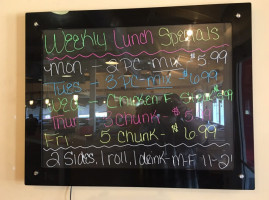 Weekly Lunch Specials
Mon - 3 PC - mix $5.99
Tues - 3 PC - mix $6.99
Wed - Chicken F
Thur - 5 chunk - $
Fri - 5 chunk - $6.99
2 Sides, 1 roll, 1 drink - M-F 11-2